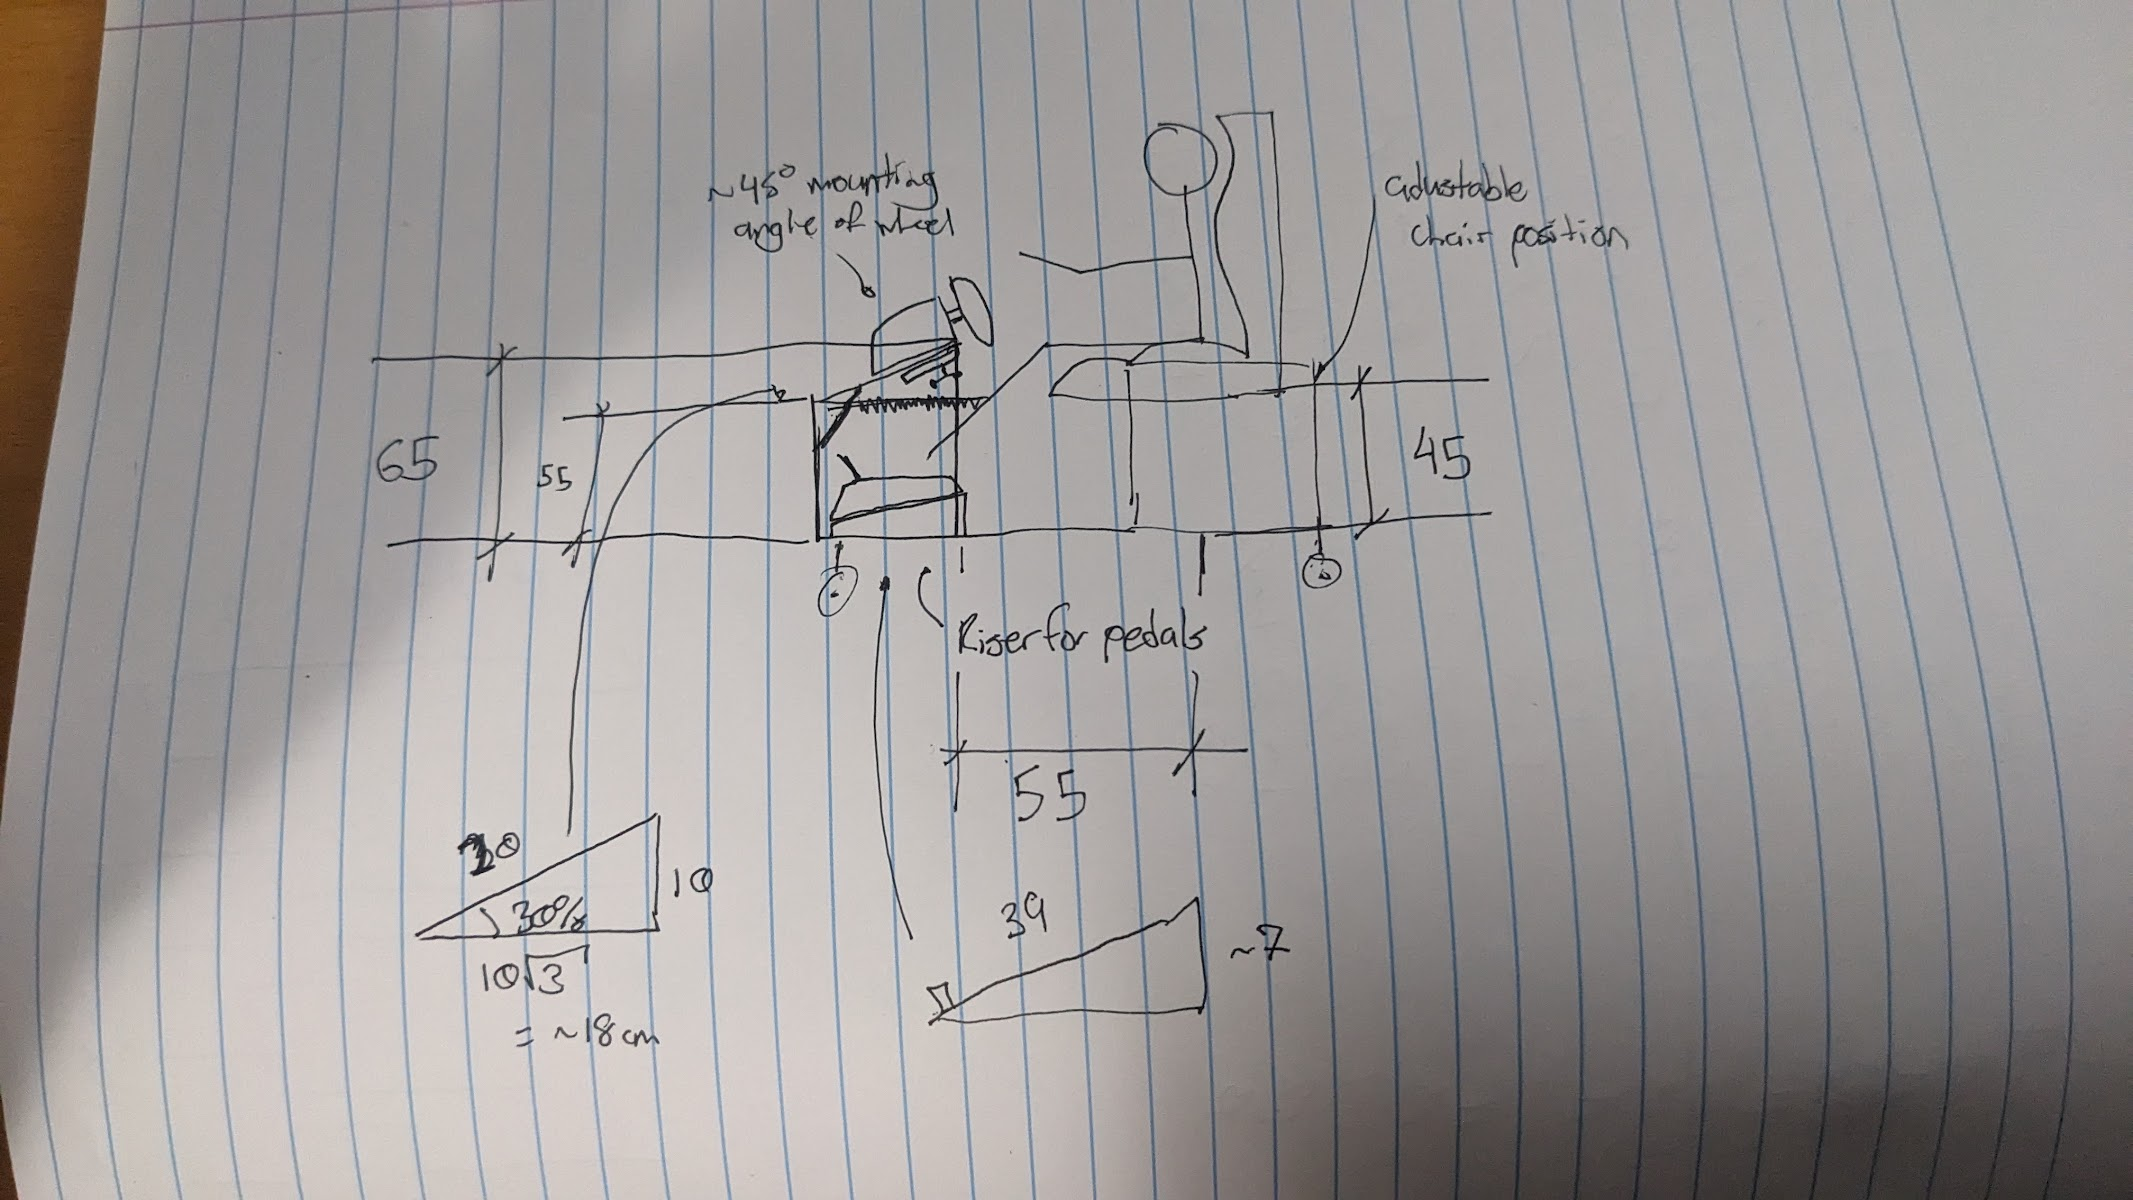 ~45° mounting
angle of wheel
adustable
chair position
65
55
45
Riser for pedals
55
20
30%
10
10√3
= ~18cm
39
~7